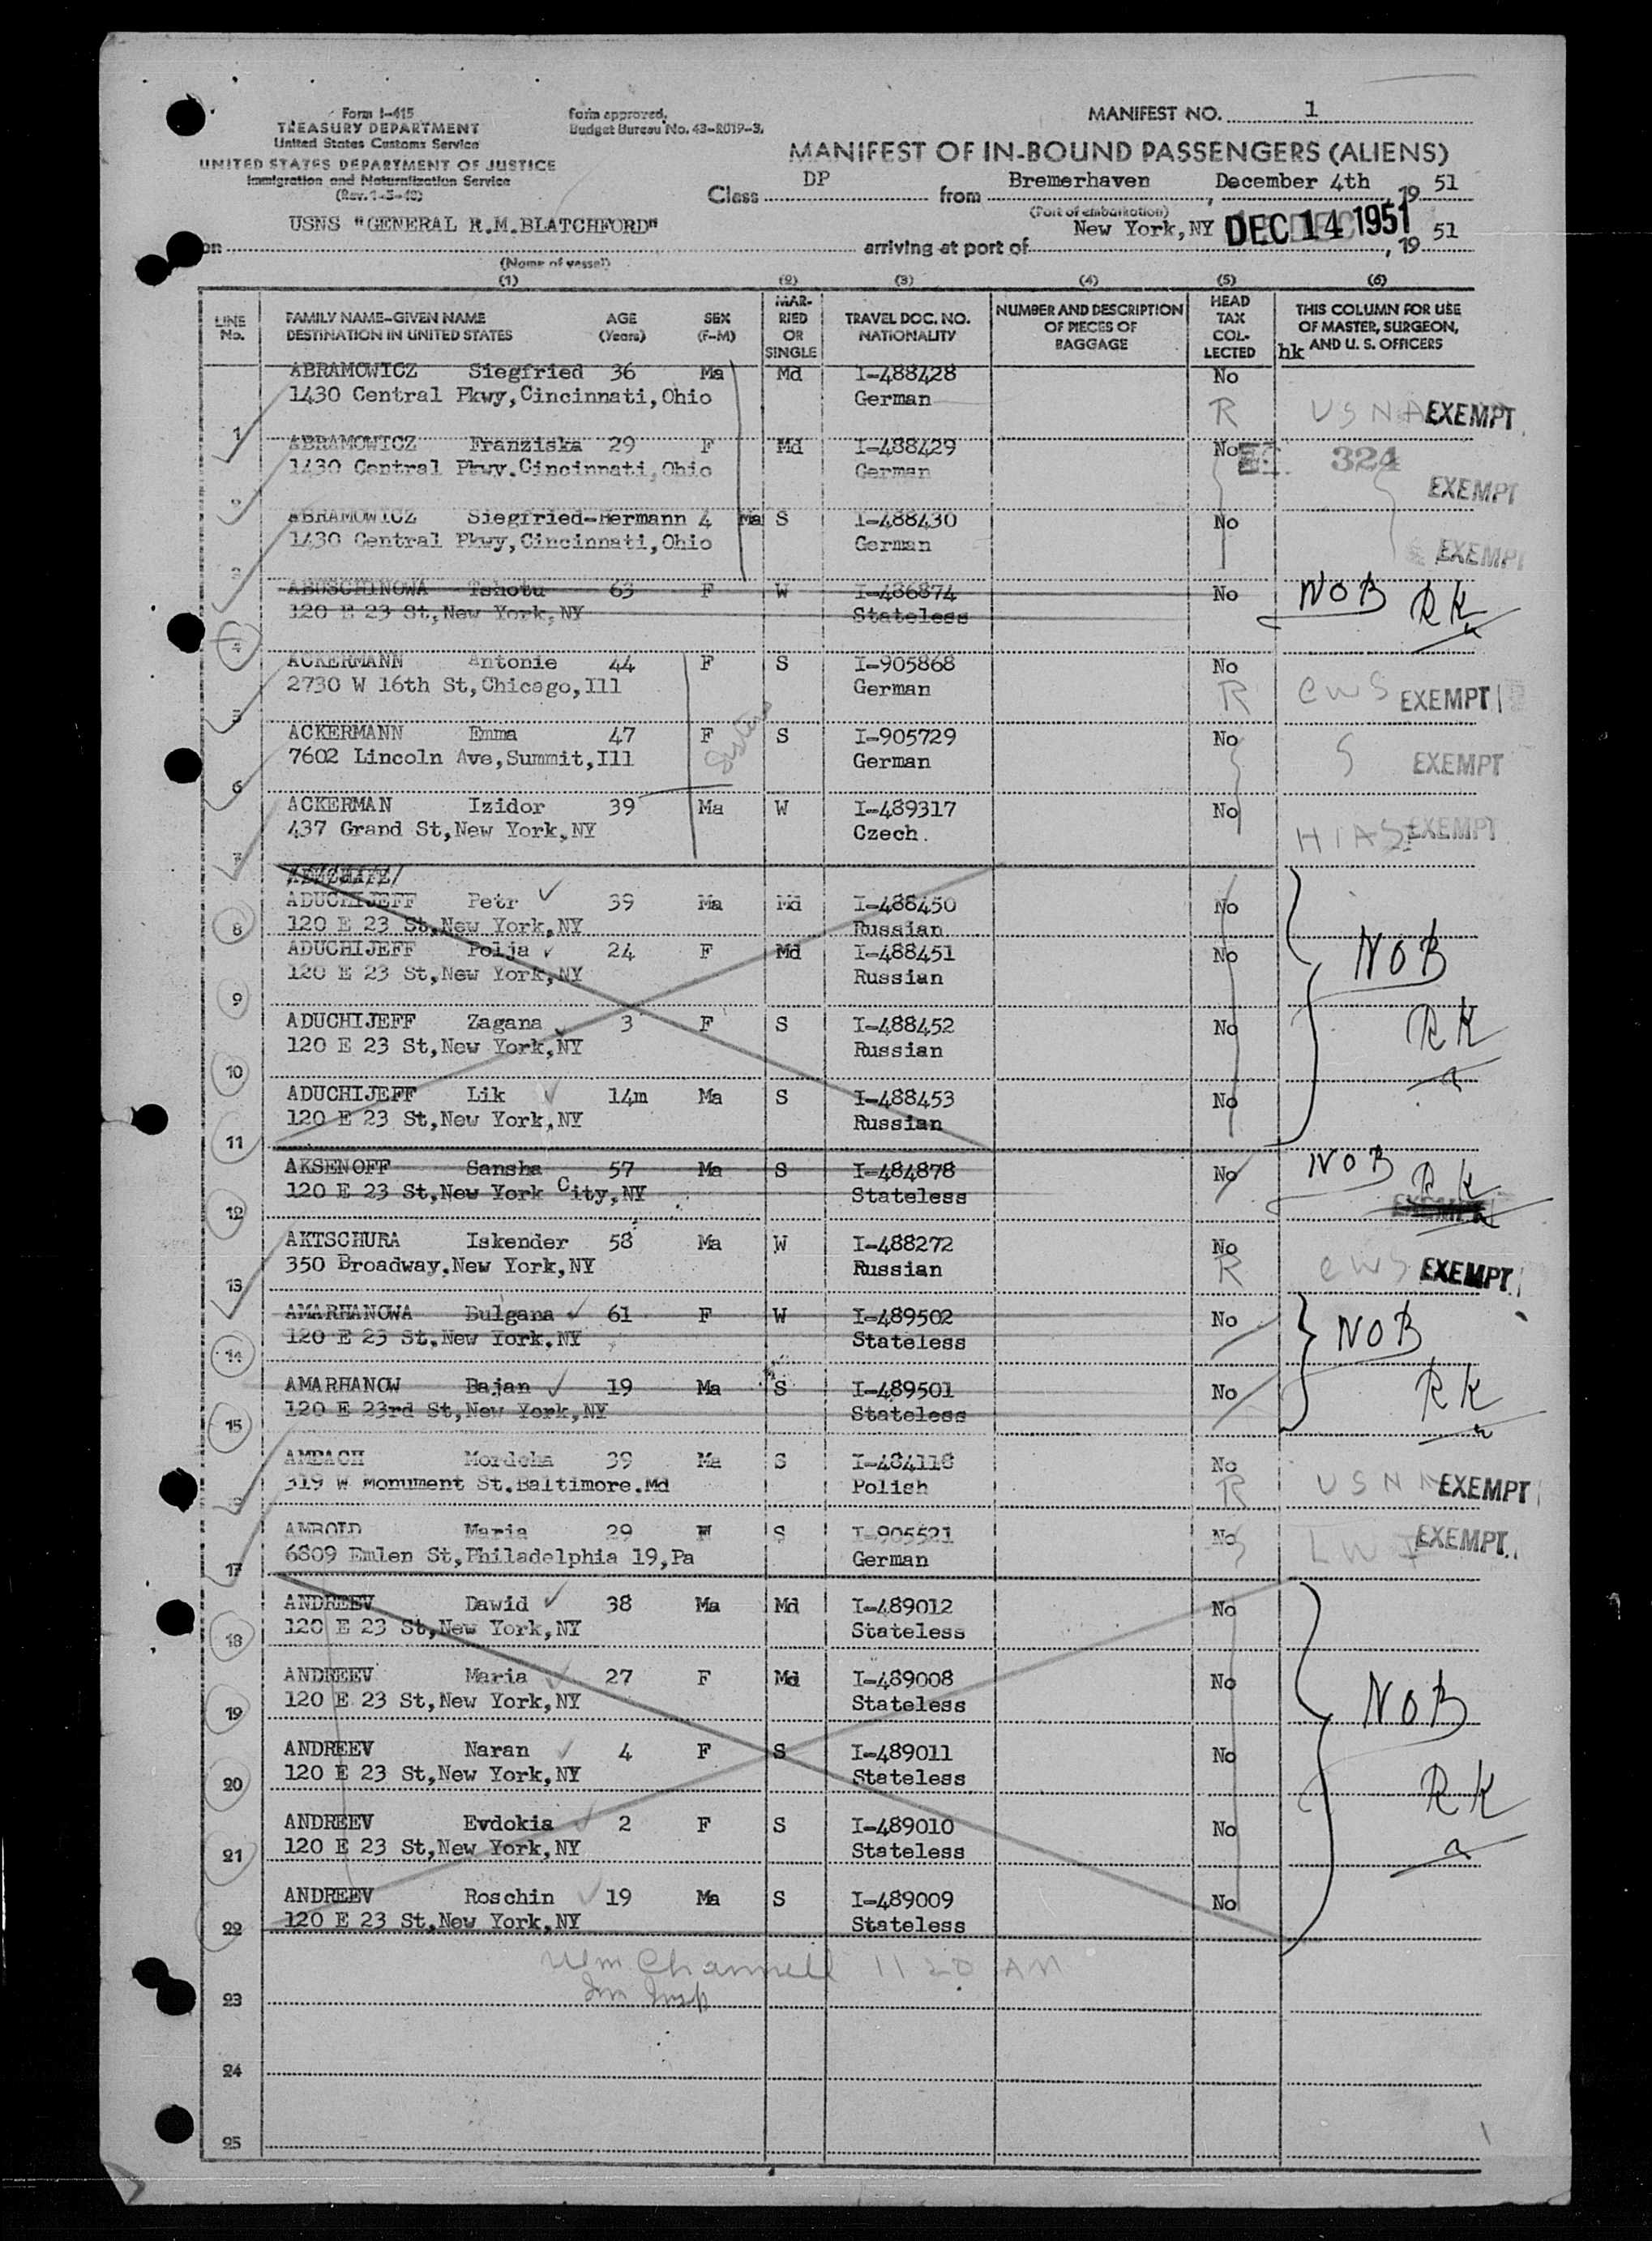 Form I-415
TREASURY DEPARTMENT
United States Customs Service
UNITED STATES DEPARTMENT OF JUSTICE
Immigration and Naturalization Service
(Rev. 1-3-49)
Form approved.
Budget Bureau No. 43-R019-3.
MANIFEST NO. 1
MANIFEST OF IN-BOUND PASSENGERS (ALIENS)
Class DP from Bremerhaven, December 4th, 19 51
(Port of embarkation)
on USNS "GENERAL R.M.BLATCHFORD" arriving at port of New York, NY DEC 14 1951, 19 51
(Name of vessel)
(1) (2) (3) (4) (5) (6)
LINE No.
FAMILY NAME-GIVEN NAME DESTINATION IN UNITED STATES
AGE (Years)
SEX (F-M)
MARRIED OR SINGLE
TRAVEL DOC. NO. NATIONALITY
NUMBER AND DESCRIPTION OF PIECES OF BAGGAGE
HEAD TAX COLLECTED
THIS COLUMN FOR USE OF MASTER, SURGEON, AND U. S. OFFICERS
hk
ABRAMOWICZ Siegfried 36 Ma Md I-488428 No
1 1430 Central Pkwy,Cincinnati,Ohio German R USNA EXEMPT
ABRAMOWICZ Franziska 29 F Md I-488429 No 324
2 1430 Central Pkwy.Cincinnati,Ohio German EXEMPT
ABRAMOWICZ Siegfried-Hermann 4 Ma S I-488430 No
3 1430 Central Pkwy,Cincinnati,Ohio German EXEMPT
ABUSCHINOWA Tshotu 63 F W I-486874 No NOB RK
4 120 E 23 St,New York,NY Stateless
ACKERMANN Antonie 44 F S I-905868 No
5 2730 W 16th St,Chicago,Ill German R CWS EXEMPT
Sisters
ACKERMANN Emma 47 F S I-905729 No
6 7602 Lincoln Ave,Summit,Ill German S EXEMPT
ACKERMAN Izidor 39 Ma W I-489317 No
7 437 Grand St,New York,NY Czech. HIAS EXEMPT
ADUCHIJEFF Petr 39 Ma Md I-488450 No
8 120 E 23 St,New York,NY Russian
ADUCHIJEFF Polja 24 F Md I-488451 No NOB
9 120 E 23 St,New York,NY Russian
ADUCHIJEFF Zagana 3 F S I-488452 No RK
10 120 E 23 St,New York,NY Russian
ADUCHIJEFF Lik 14m Ma S I-488453 No
11 120 E 23 St,New York,NY Russian
AKSENOFF Sansha 57 Ma S I-484878 No NOB RK
12 120 E 23 St,New York City,NY Stateless EXEMPT
AKTSCHURA Iskender 58 Ma W I-488272 No
13 350 Broadway.New York,NY Russian R CWS EXEMPT
AMARHANOWA Bulgana 61 F W I-489502 No NOB
14 120 E 23 St.New York.NY Stateless
AMARHANOW Bajan 19 Ma S I-489501 No RK
15 120 E 23rd St,New York,NY Stateless
AMBACH Mordcha 39 Ma S I-484118 No
319 W Monument St.Baltimore.Md Polish R USNA EXEMPT
AMBOLD Maria 29 F S I-905521 No
17 6809 Emlen St,Philadelphia 19,Pa German EXEMPT
ANDREEV Dawid 38 Ma Md I-489012 No
18 120 E 23 St,New York,NY Stateless
ANDREEV Maria 27 F Md I-489008 No NOB
19 120 E 23 St,New York,NY Stateless
ANDREEV Naran 4 F S I-489011 No RK
20 120 E 23 St,New York,NY Stateless
ANDREEV Evdokia 2 F S I-489010 No
21 120 E 23 St,New York,NY Stateless
ANDREEV Roschin 19 Ma S I-489009 No
22 120 E 23 St,New York,NY Stateless
Wm Channell 11 20 AM
Im Insp
23
24
25